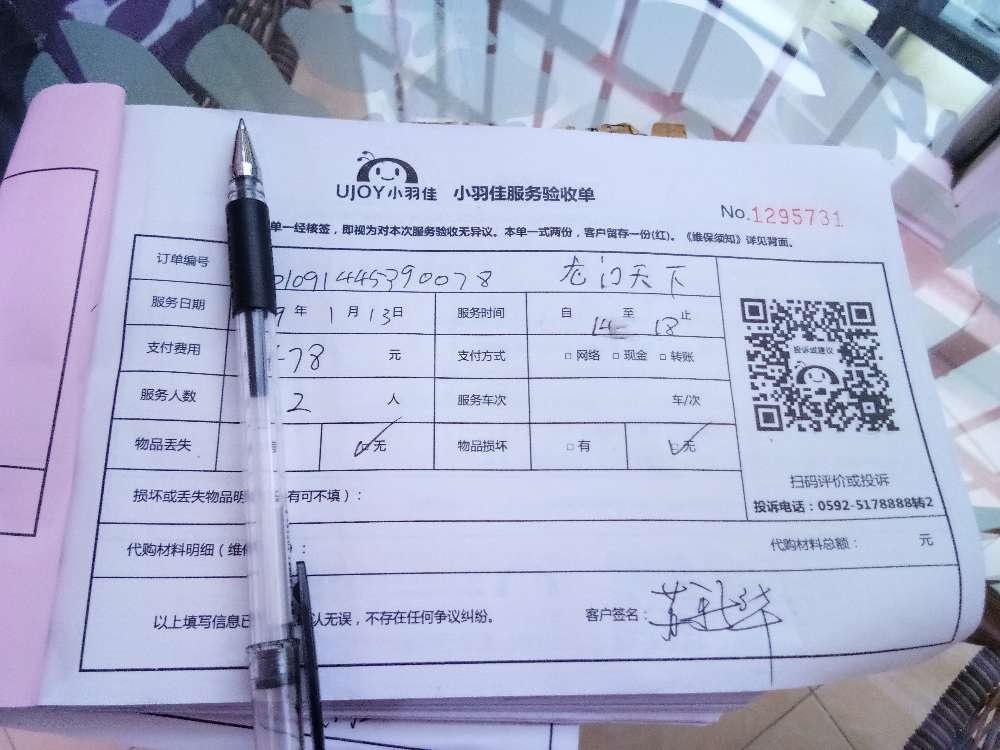 UJOY小羽佳 小羽佳服务验收单
No.1295731
单一经核签，即视为对本次服务验收无异议。本单一式两份，客户留存一份(红)。《维保须知》详见背面。
订单编号 01091445390078 龙门天下
服务日期 9年1月13日 服务时间 自14至18止
支付费用 78元 支付方式 □网络 □现金 □转账
服务人数 2人 服务车次 车/次
物品丢失 ☑无 物品损坏 □有 ☑无
投诉或建议
扫码评价或投诉
投诉电话：0592-5178888转2
损坏或丢失物品明 有可不填）：
代购材料明细（维 ）： 代购材料总额： 元
以上填写信息已 认无误，不存在任何争议纠纷。 客户签名：